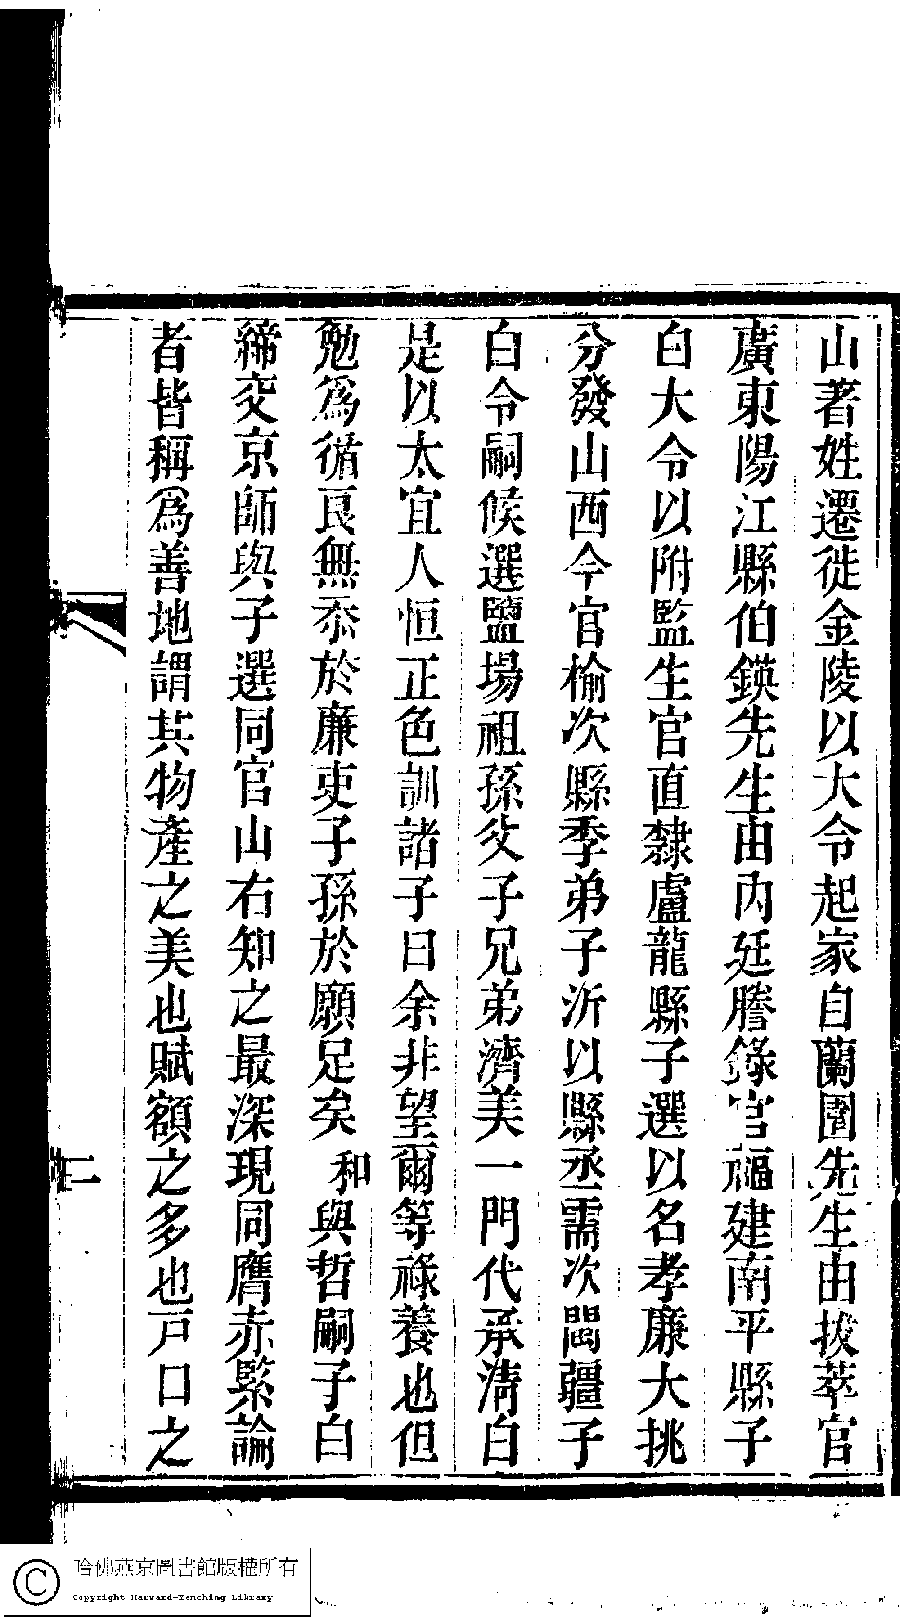 山著姓遷徙金陵以大令起家自蘭圃先生由拔萃官
廣東陽江縣伯鍈先生由內廷謄錄官福建南平縣子
白大令以附監生官直隸盧龍縣子選以名孝廉大挑
分發山西今官榆次縣季弟子沂以縣丞需次閩疆子
白令嗣候選鹽場祖孫父子兄弟濟美一門代承清白
是以太宜人恒正色訓諸子曰余非望爾等祿養也但
勉爲循良無忝於廉吏子孫於願足矣和與哲嗣子白
締交京師與子選同官山右知之最深現同膺赤緊論
者皆稱爲善地謂其物產之美也賦額之多也戸口之
二
哈佛燕京圖書館版權所有
Copyright Harvard-Yenching Library